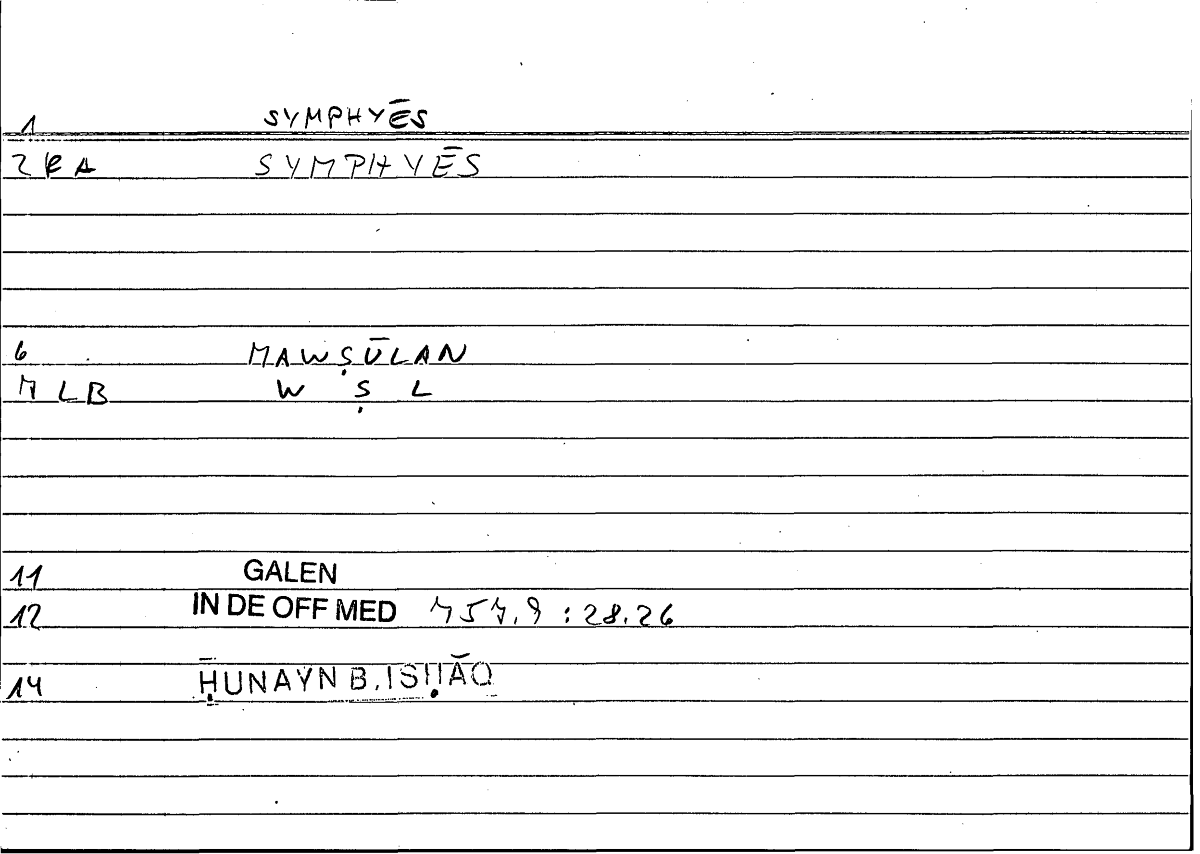 1 SYMPHYĒS
2 EA SYMPHYĒS
6 MAWṢŪLAN
7 LB W Ṣ L
11 GALEN
12 IN DE OFF MED 757,9 : 28.26
14 ḤUNAYN B. ISḤĀQ